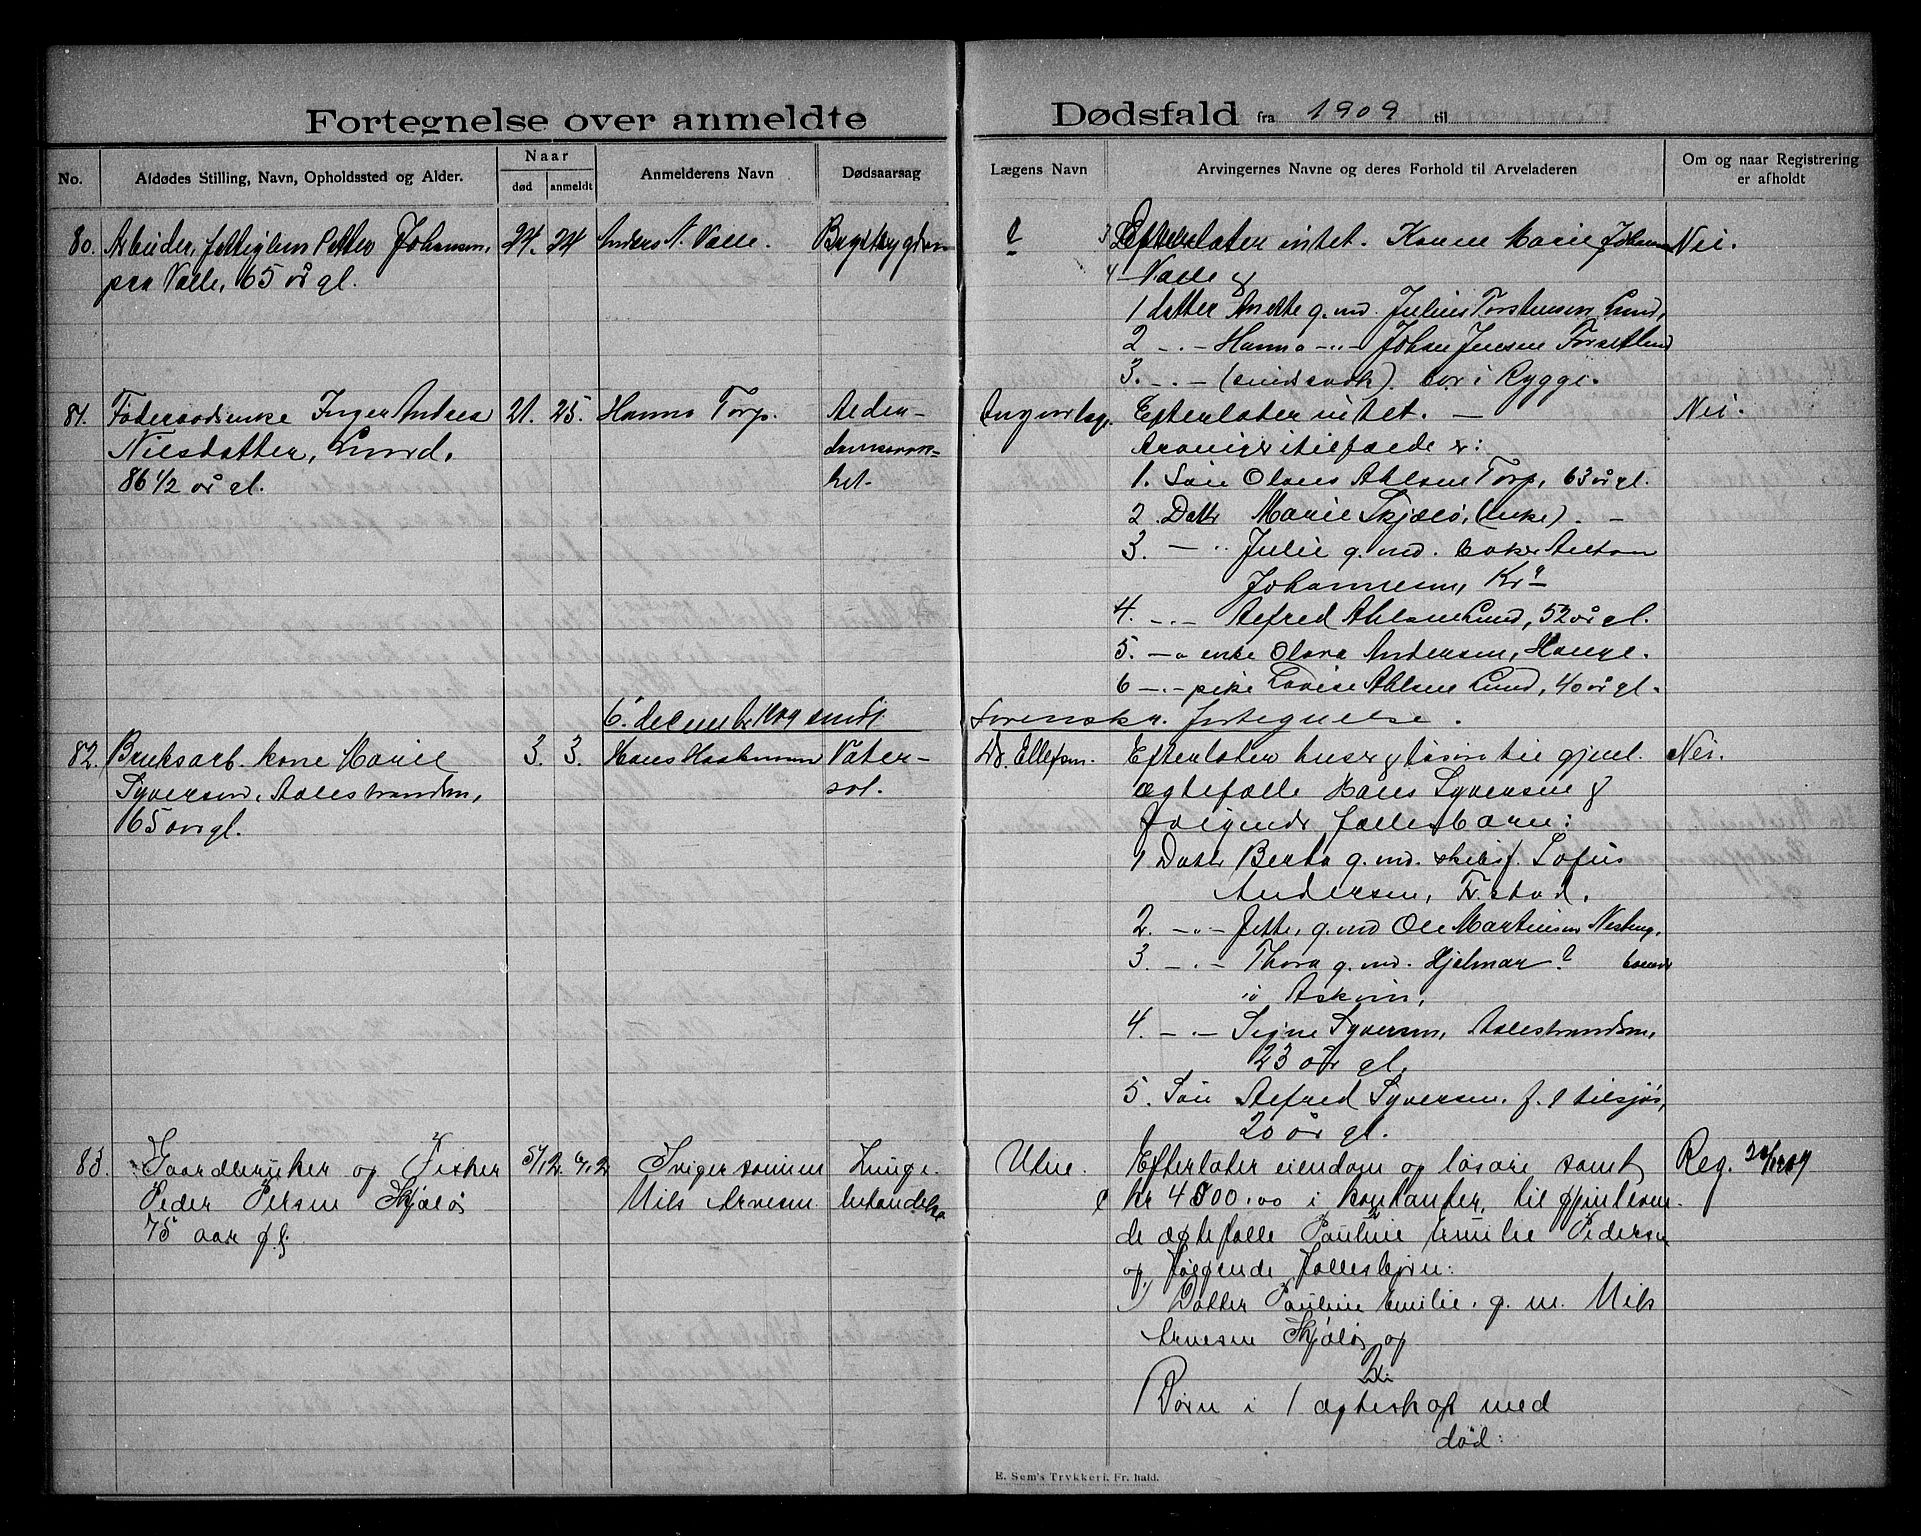 Fortegnelse over anmeldte Dødsfald fra 1909 til
No.
Afdødes Stilling, Navn, Opholdssted og Alder.
Naar
død
anmeldt
Anmelderens Navn
Dødsaarsag
Lægens Navn
Arvingernes Navne og deres Forhold til Arveladeren
Om og naar Registrering
er afholdt
80. Arbeider, fattiglem Petter Johansen,
paa Valle, 65 år gl.
24. 24
Anders N. Valle.
?
Efterlater intet. Kone Marie
Valle &
1 datter Anette g. md. Julius Torstensen Lund,
2 -"- Hanna -"- Johan Jensen
3. -"- (sindssvak). bor i Rygge.
Nei.
81. Föderaadsenke Inger Andrea
Nilsdatter, Lund,
86 1/2 år gl.
21. 25.
Hanna Torp.
Alder-
domssvak-
het.
Efterlater intet. —
Arvinger i tilfælde er:
1. Sön Olaus Ahlsen Torp, 63 år gl.
2. Dattr Marie Skjælö, (enke). —
3. -"- Julie g. md. Anton
Johannesen, Kr a
4. -"- Alfred Ahlsen Lund, 52 år gl.
5. -"- enke Olava Andersen, Hauge.
6 -"- pike Lovise Ahlsen Lund, 40 år gl.
Nei.
6. december 1909 sendt
fortegnelse.
82. Bruksarb. kone Marie
Syversen, Aalestranden,
65 år gl.
3. 3.
Hans
Vater-
sot.
Dr. Ellefsen.
Efterlater huser & løsøre til gjenl.
ægtefælle Hans Syversen &
følgende fælles barn:
1 Datter Berta g. md. Sofus
Andersen, Fr.stad.
2. -"- Jette, g. md Ole Martinsen
3. -"- Thora g. md. Hjelmar ? boende
i Askim,
4. -"- Signe Syversen, Aalestranden,
23 år gl.
5. Sön Alfred Syversen. f. t tilsjøs,
20 år gl.
Nei.
83. Gaardbruker og Fisker
Peder Persen Skjælø
75 aar g.
5/12. 6/12
Svigersønnen
Nils Arnesen.
Utne.
Efterlater eiendom og løsøre samt
kr 4500.00 i kontanter, til gjenleven-
de ægtefælle Pauline Emilie Pedersen
og følgende fællesbørn:
1) Datter Pauline Emilie. g. m. Nils
Arnesen Skjælø og
Børn i 1 ægteskap med
død:
Reg.
E. Sem's Trykkeri, Fr.hald.